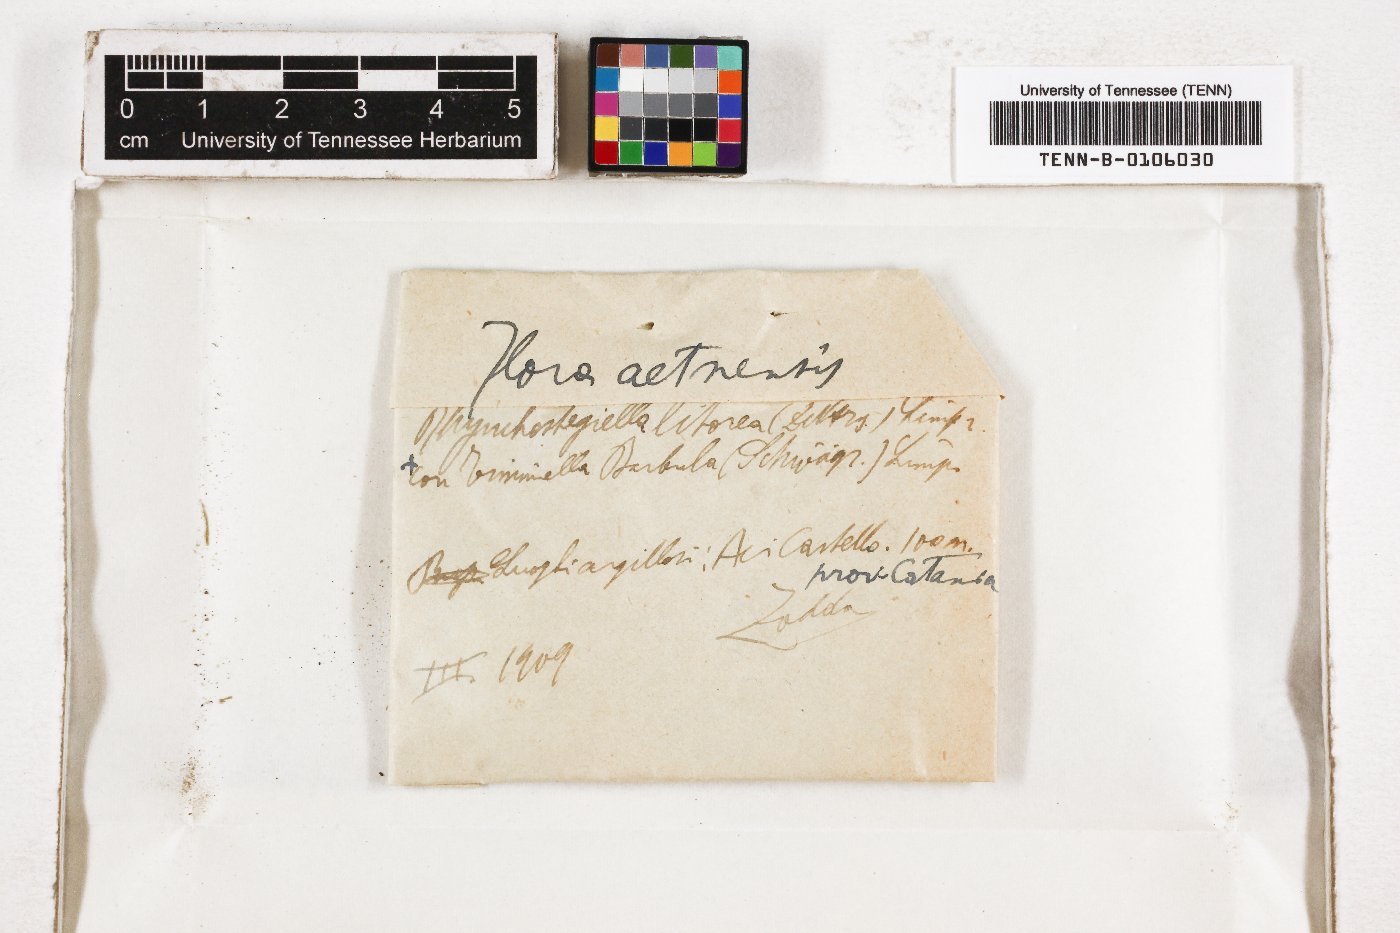 0 1 2 3 4 5
cm University of Tennessee Herbarium
University of Tennessee (TENN)
TENN-B-0106030
Flora aetnensis
Rhynchostegiella litorea (De Ntrs.) Limpr.
+ con Trimmiella Barbula (Schwägr.) Limp.
luoghi argillosi: Aci Castello. 100 m.
prov. Catania
Zodda
III. 1909